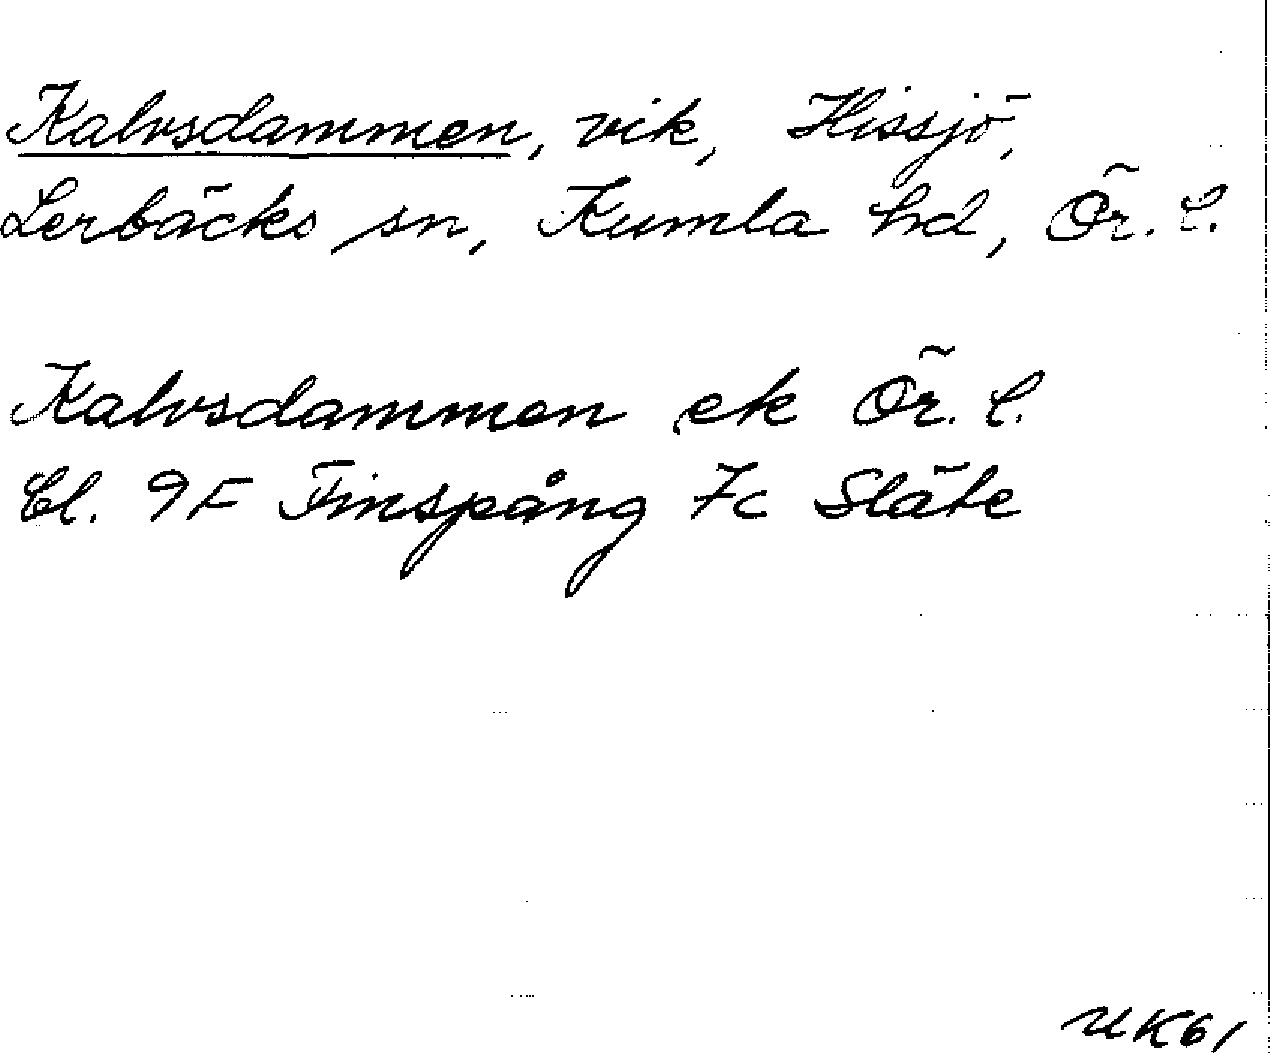 Kalvsdammen, vik, Hissjö,
Lerbäcks sn, Kumla hd, Ör. l.
Kalvsdammen ek Ör. l.
bl. 9F Finspång 7c Släte
UK61